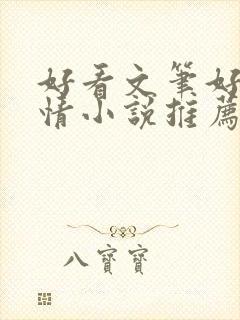 好看文筆好
情小說推薦
八寶寶